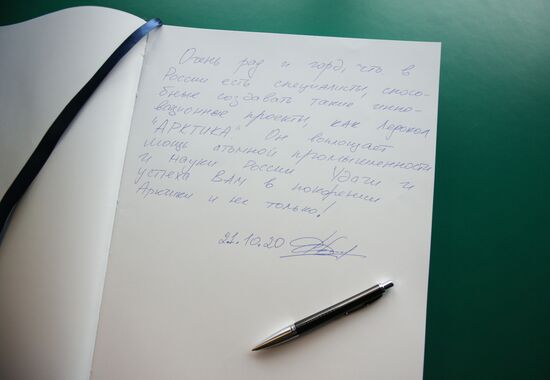 Очень рад и горд, что в
России есть специалисты, спосо-
бные создавать такие инно-
вационные проекты, как ледокол
"АРКТИКА". Он воплощает
мощь атомной промышленности
и науки России. Удачи и
успеха ВАМ в покорении
Арктики и не только!
21.10.20